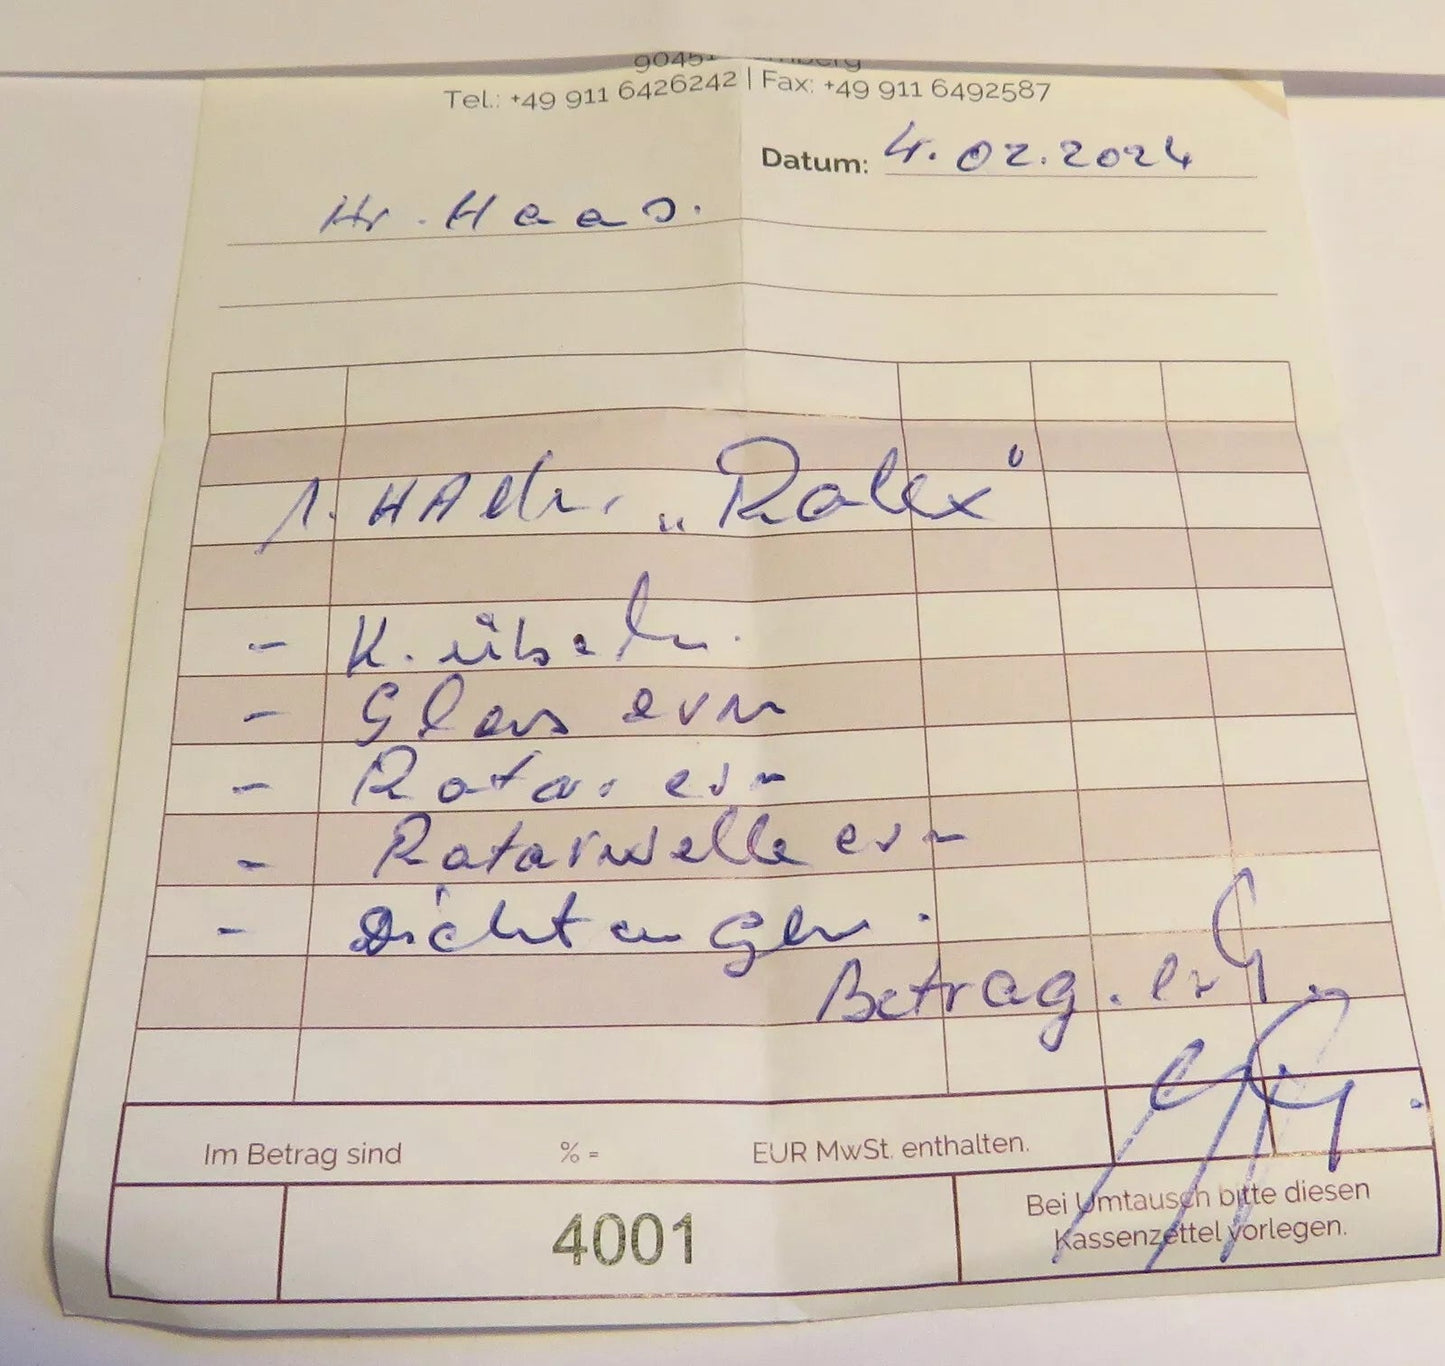 Tel.: +49 911 6426242 | Fax: +49 911 6492587
Datum: 4.02.2024
Hr. Haas.
1. HAU „Rolex“
- K. überh.
- Glas ern
- Rotor ern
- Rotorwelle ern
- Dichtungen.
Betrag. erh.
Im Betrag sind % = EUR MwSt. enthalten.
4001
Bei Umtausch bitte diesen
Kassenzettel vorlegen.